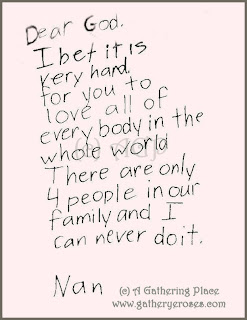 Dear God.
I bet it is
very hard
for you to
love all of
every body in the
whole world
There are only
4 people in our
family and I
can never do it.
Nan
(c) A Gathering Place
www.gatheryeroses.com